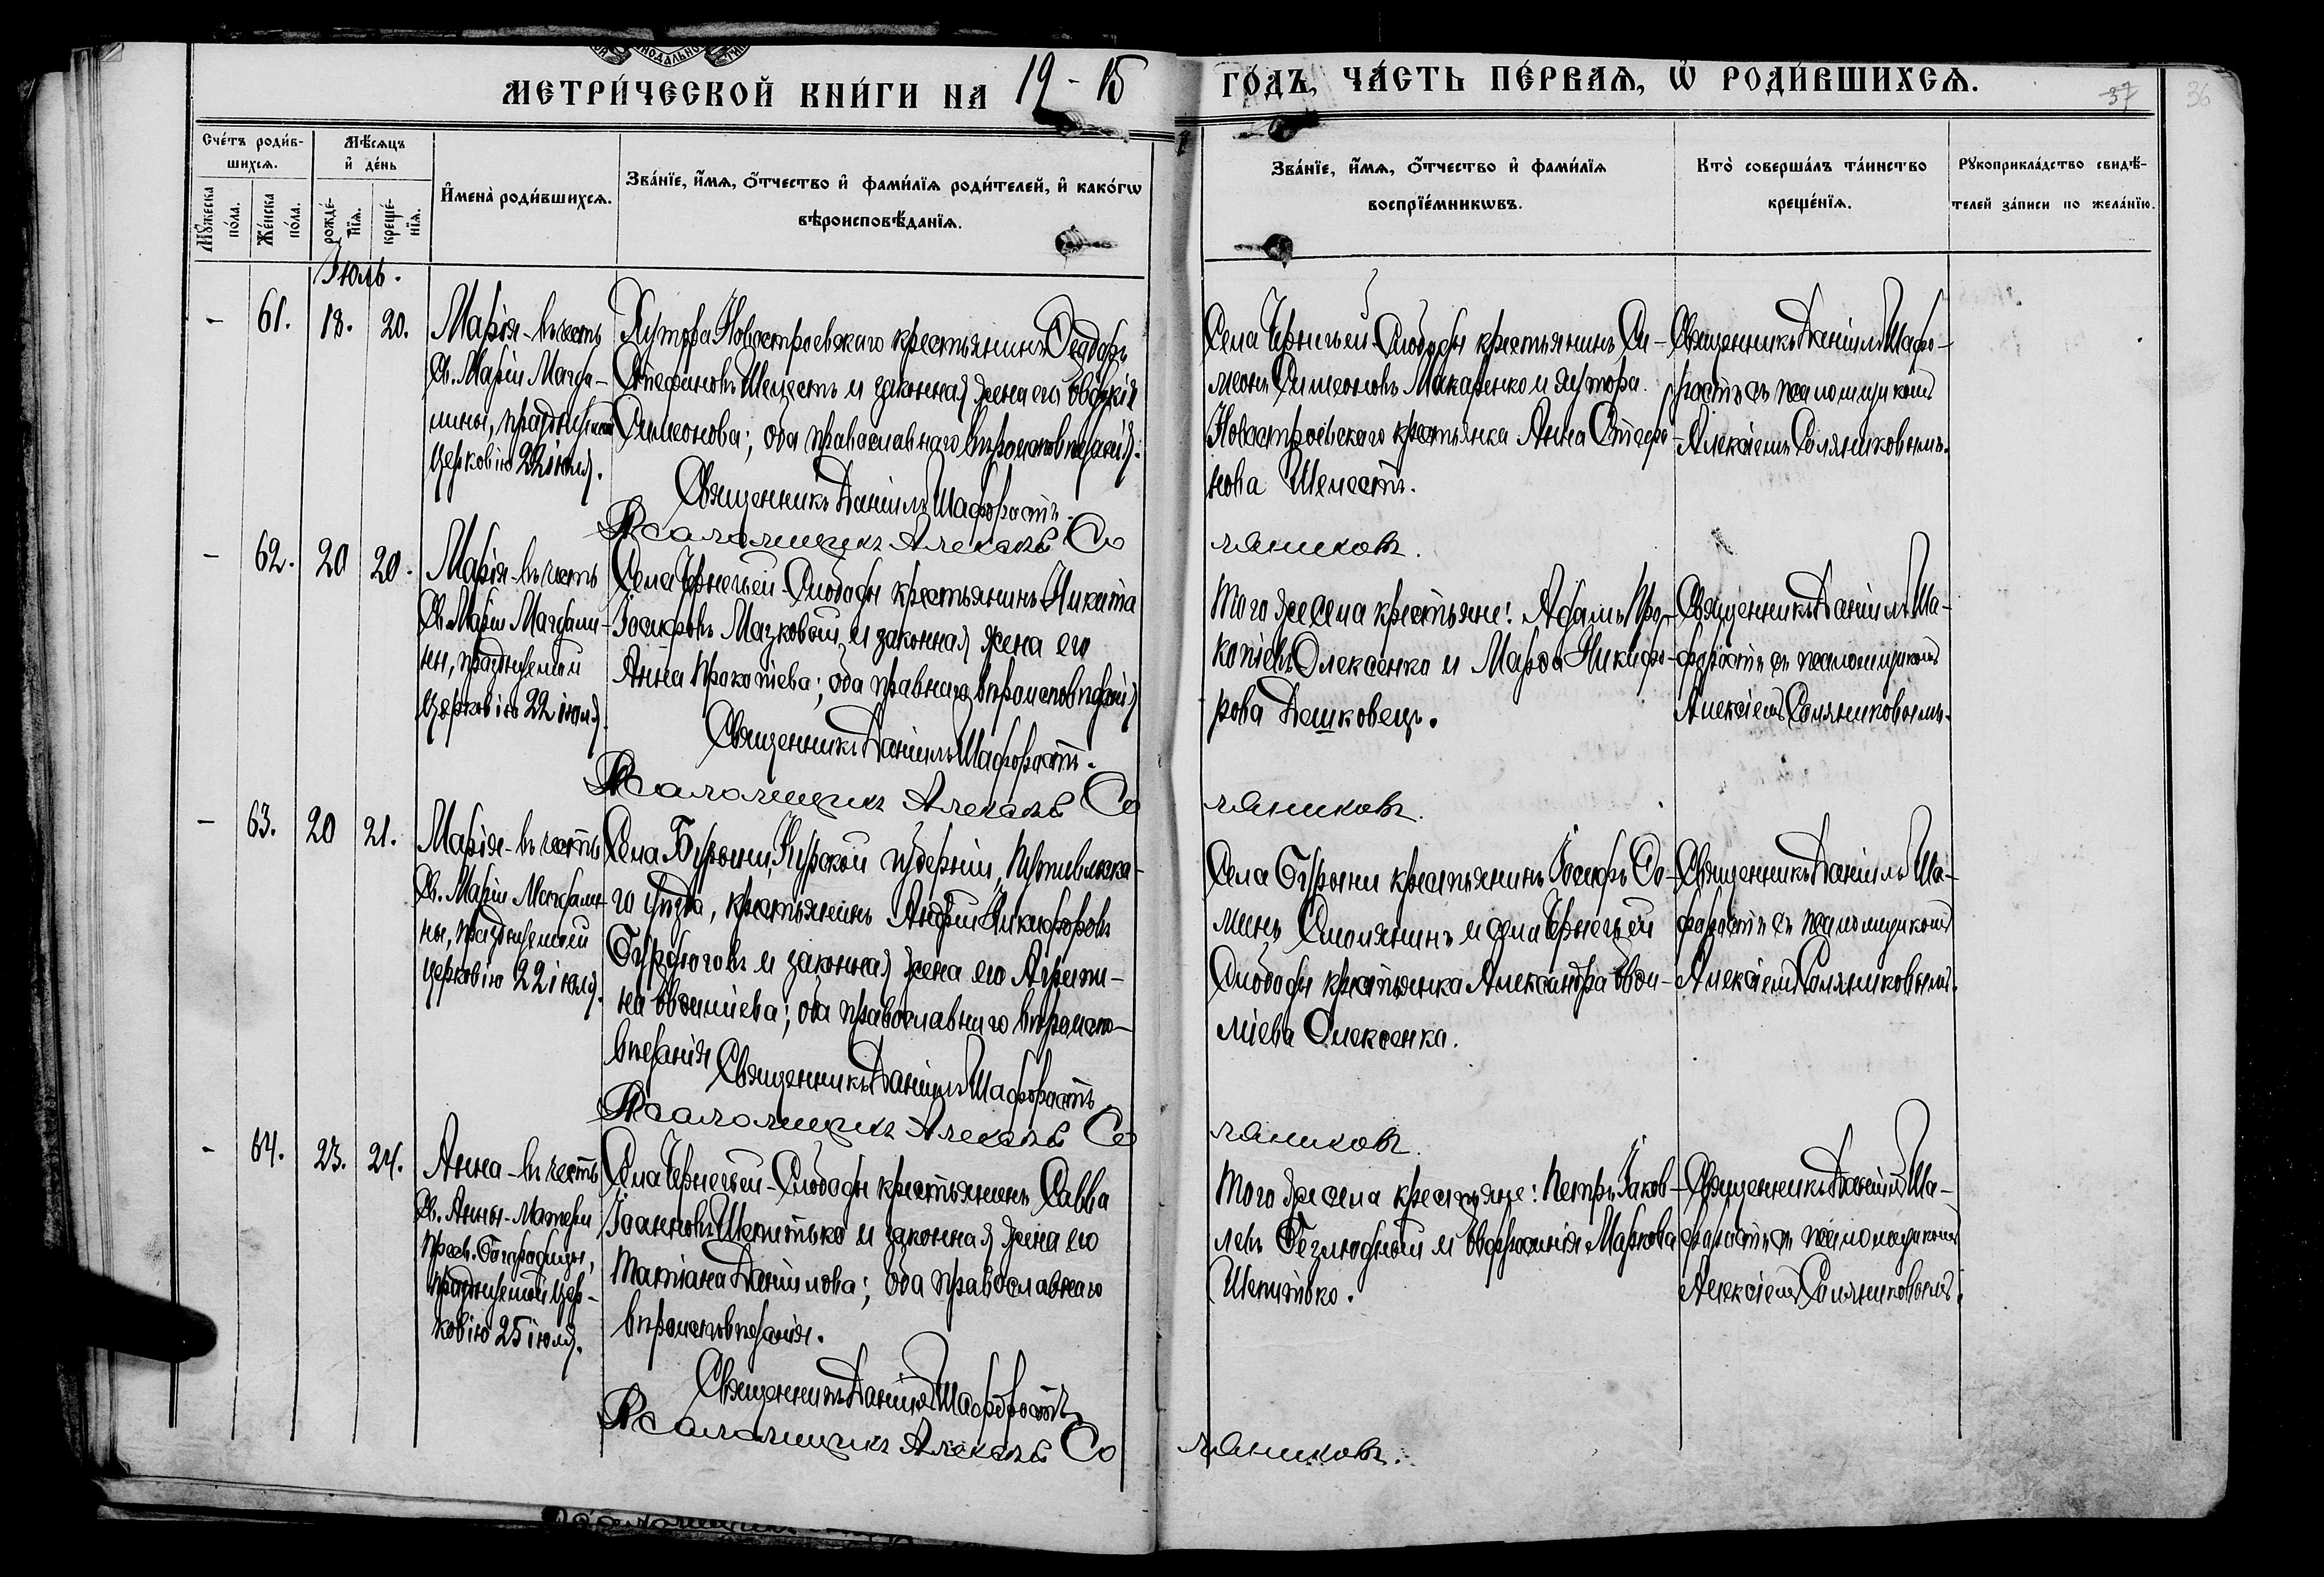 МЕТРИ́ЧЕСКОЙ КНИ́ГИ НА 19-15 ГО́ДЪ, ЧА́СТЬ ПЕ́РВАѦ, Ѡ҆ РОДИ́ВШИХСѦ.
37 36
Сче́тъ роди́в-
шихсѧ.
Мѣ́сѧцъ
и҆ де́нь
Мꙋ́жеска
по́ла.
Же́нска
по́ла.
рожде́-
нїѧ.
креще́-
нїѧ.
И҆мена̀ роди́вшихсѧ.
Зва́нїе, и҆́мѧ, ѻ҆́тчество и҆ фами́лїѧ роди́телей, и҆ како́гѡ
вѣроисповѣ́данїѧ.
Зва́нїе, и҆́мѧ, ѻ҆́тчество и҆ фами́лїѧ
воспрїе́мникѡвъ.
Кто̀ соверша́лъ та́инство
креще́нїѧ.
Рꙋкоприкла́дство свидѣ́-
телей за́писи по жела́нїю.
Іюль.
- 61. 18. 20.
Марія - въ честь
Св. Маріи Магда-
лины, празднуемой
церковію 22 іюля.
Хутора Новостроевскаго крестьянинъ Ѳеодоръ
Стефановъ Шелестъ и законная жена его Евдокія
Симеонова; оба православнаго вѣроисповѣданія.
Священникъ Даніилъ Шафорастъ.
Псаломщикъ Алексѣй Со
Села Чернечьей Слободы крестьянинъ Си-
меонъ Симеоновъ Макаренко и хутора
Новостроевскаго крестьянка Анна Стефа-
нова Шелестъ.
ляниковъ.
Священникъ Даніилъ Шафо-
растъ съ псаломщикомъ
Алексіемъ Соляниковымъ.
- 62. 20 20.
Марія - въ честь
Св. Маріи Магдали-
ны, празднуемой
Церковію 22 іюля.
Села Чернечьей-Слободы крестьянинъ Никита
Іосифовъ Мазковой и законная жена его
Анна Прокопіева; оба правнаго вѣроисповѣданія
Священникъ Даніилъ Шафорастъ.
Псаломщикъ Алексѣй Со
Того же села крестьяне: Адамъ Про-
копіевъ Олексенко и Марѳа Никифо-
рова Дешковецъ.
ляниковъ.
Священникъ Даніилъ Ша-
форастъ съ псаломщикомъ
Алексіемъ Соляниковымъ.
- 63. 20 21.
Марія - въ честь
Св. Маріи Магдали-
ны, празднуемой
церковію 22 іюля.
Села Бурыни, Курской губерніи, Путивльска-
го уѣзда, крестьянинъ Андрей Никифоровъ
и законная жена его Агрипи-
на Евсиміева; оба православнаго вѣроиспо-
вѣданія Священникъ Даніилъ Шафорастъ
Псаломщикъ Алексѣй Со
Села Бурыни крестьянинъ Іосифъ Ѳо-
минъ Смолянинъ и села Чернечьей
Слободы крестьянка Александра Евѳи-
міева Олексенка.
ляниковъ.
Священникъ Даніилъ Ша-
форастъ съ псаломщикомъ
Алексіемъ Соляниковымъ.
- 64. 23. 24.
Анна - въ честь
Св. Анны - Матери
Пресв. Богородицы,
празднуемой цер-
ковію 25 іюля.
Села Чернечьей-Слободы крестьянинъ Савва
Іоанновъ Шепитько и законная жена его
Татіана Даніилова; оба православнаго
вѣроисповѣданія.
Священникъ Даніилъ Шафорастъ
Псаломщикъ Алексѣй Со
Того же села крестьяне: Петръ Іаков-
левъ Безлюдный и Евфросинія Маркова
Шепитько.
ляниковъ.
Священникъ Даніилъ Ша-
форастъ съ псаломщикомъ
Алексіемъ Соляниковымъ.